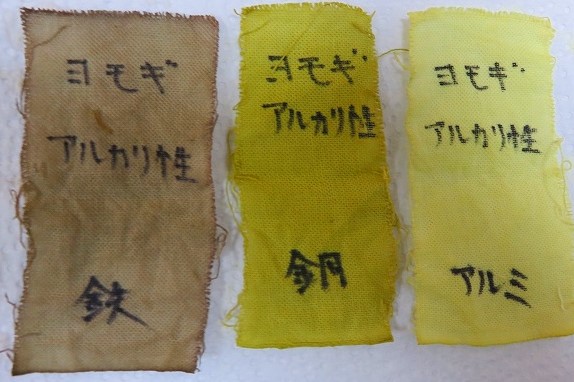 ヨモギ
アルカリ性
鉄
ヨモギ
アルカリ性
銅
ヨモギ
アルカリ性
アルミ